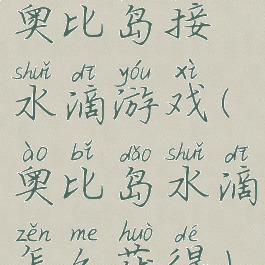 奥比岛接
shuǐ dī yóu xì
水滴游戏(
ào bǐ dǎo shuǐ dī
奥比岛水滴
zěn me huò dé
怎么获得)